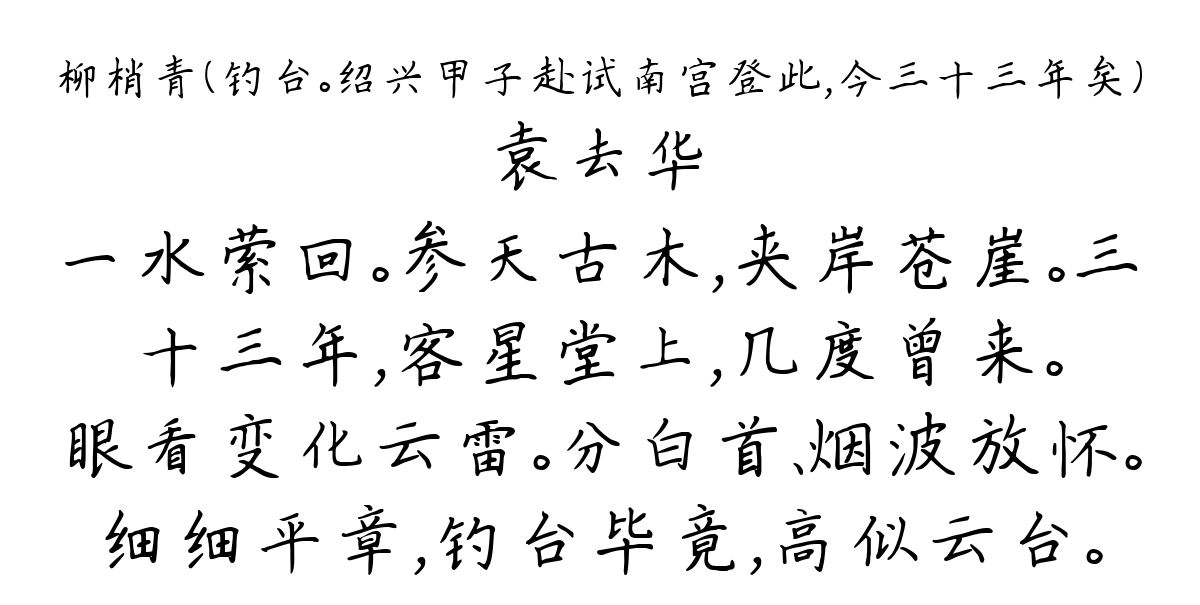 柳梢青(钓台。绍兴甲子赴试南宫登此,今三十三年矣)
袁去华
一水萦回。参天古木,夹岸苍崖。三
十三年,客星堂上,几度曾来。
眼看变化云雷。分白首、烟波放怀。
细细平章,钓台毕竟,高似云台。